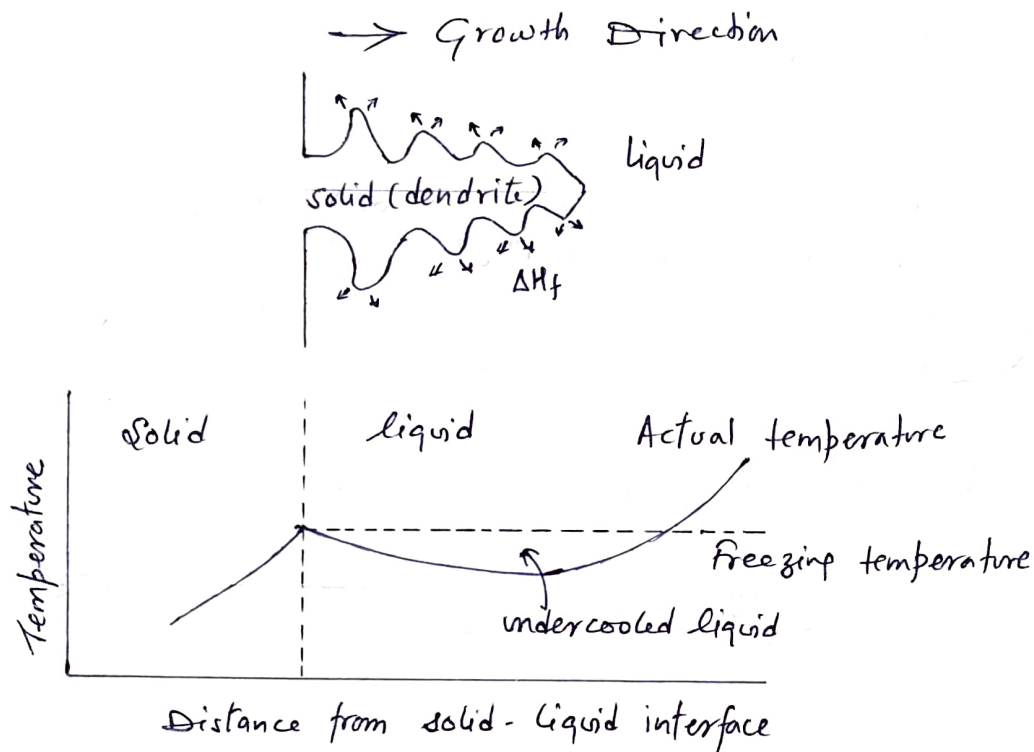 → Growth Direction
liquid
solid (dendrite)
ΔHf
Solid
liquid
Actual temperature
Temperature
Freezing temperature
undercooled liquid
Distance from solid - liquid interface